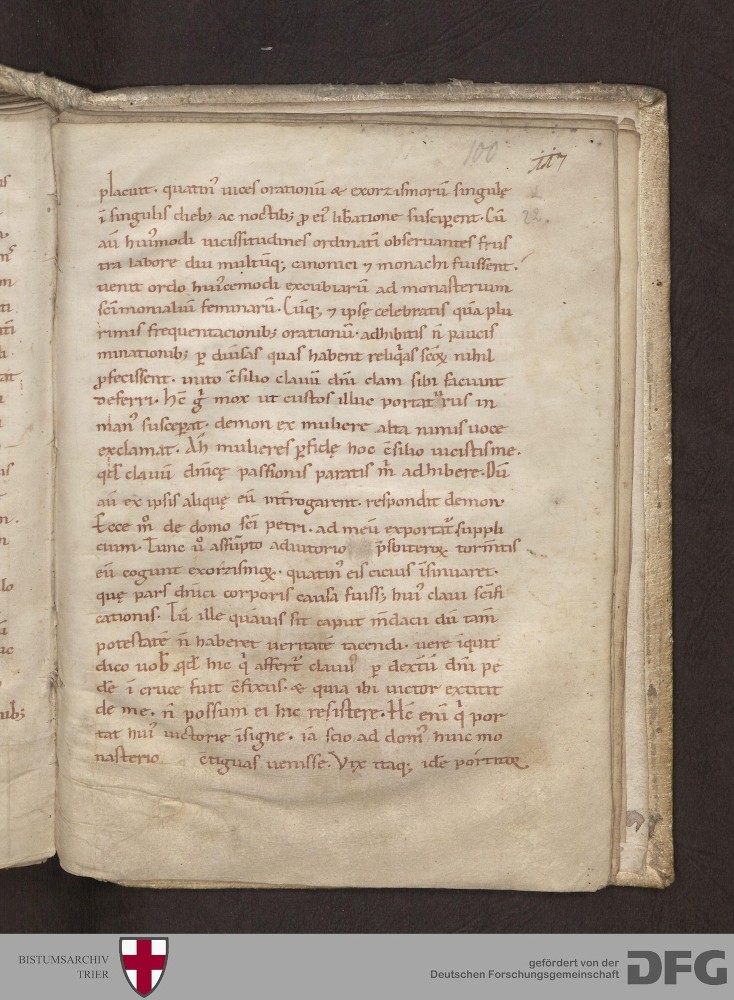 100
placuit. quatin᷒ uices orationū & exorzismorū singulę
ī singulis dieb; ac noctib; ꝓ ei᷒ libatione susciperent. Cū
22.
aū hui᷒modi uicissitudines ordinati obseruantes frus
tra labore diu multūq; canonici ⁊ monachi fuissent.
uenit ordo hui᷒cemodi excubiarū ad monasterium
scīmonialiū feminarū. Cūq; ⁊ ipsę celebratis quā plu
rimis frequentacionib; orationū. adhibitis n̄ paucis
minationib; ꝑ diuīsas quas habent reliq̇as scōꝝ nihil
ꝓfecissent. inito c̄silio clauū dn̄i clam sibi faciunt
deferri. Hc̄ g̊ mox ut custos illuc portat rus in
man᷒ susceꝑat. demon ex muliere alta nimis uoce
exclamat. Ah mulieres ꝑfidę hoc c̄silio uicistis me.
qd̄ clauū dn̄icę passionis paratis m̄ adhibere. Dū
aū ex ipsis aliquę eū int̄rogarent. respondit demon.
Ecce m̊ de domo sc̄i petri. ad meū exportat᷒ suppli
cium. Tunc ů assūpto adiutorio p̄sbiteroꝝ torm̄tis
eū cogunt exorzismoꝝ. quatin᷒ eis cicius īsinuaret.
quę pars dn̄ici corporis causa fuiss; hui᷒ claui sc̄ifi
cationis. Tū ille quāuis sit caput m̄dacii dū tam̄
potestatē n̄ haberet ueritatē tacendi. uere iquit
dico uob qd̄ hic q̇ affert᷒ clauus ꝑ dext̄ū dn̄i pe
dē ī cruce fuit c̄fixus. & quia ibi uictor extitit
de me. n̄ possum ei hic resistere. Hc̄ enī q̇ por
tat hui᷒ uictorie īsigne. iā scio ad dom᷒ huic mo
nasterio c̄tiguas uenisse. Vix itaq; idē portitor
BISTUMSARCHIV
TRIER
gefördert von der
Deutschen Forschungsgemeinschaft
DFG